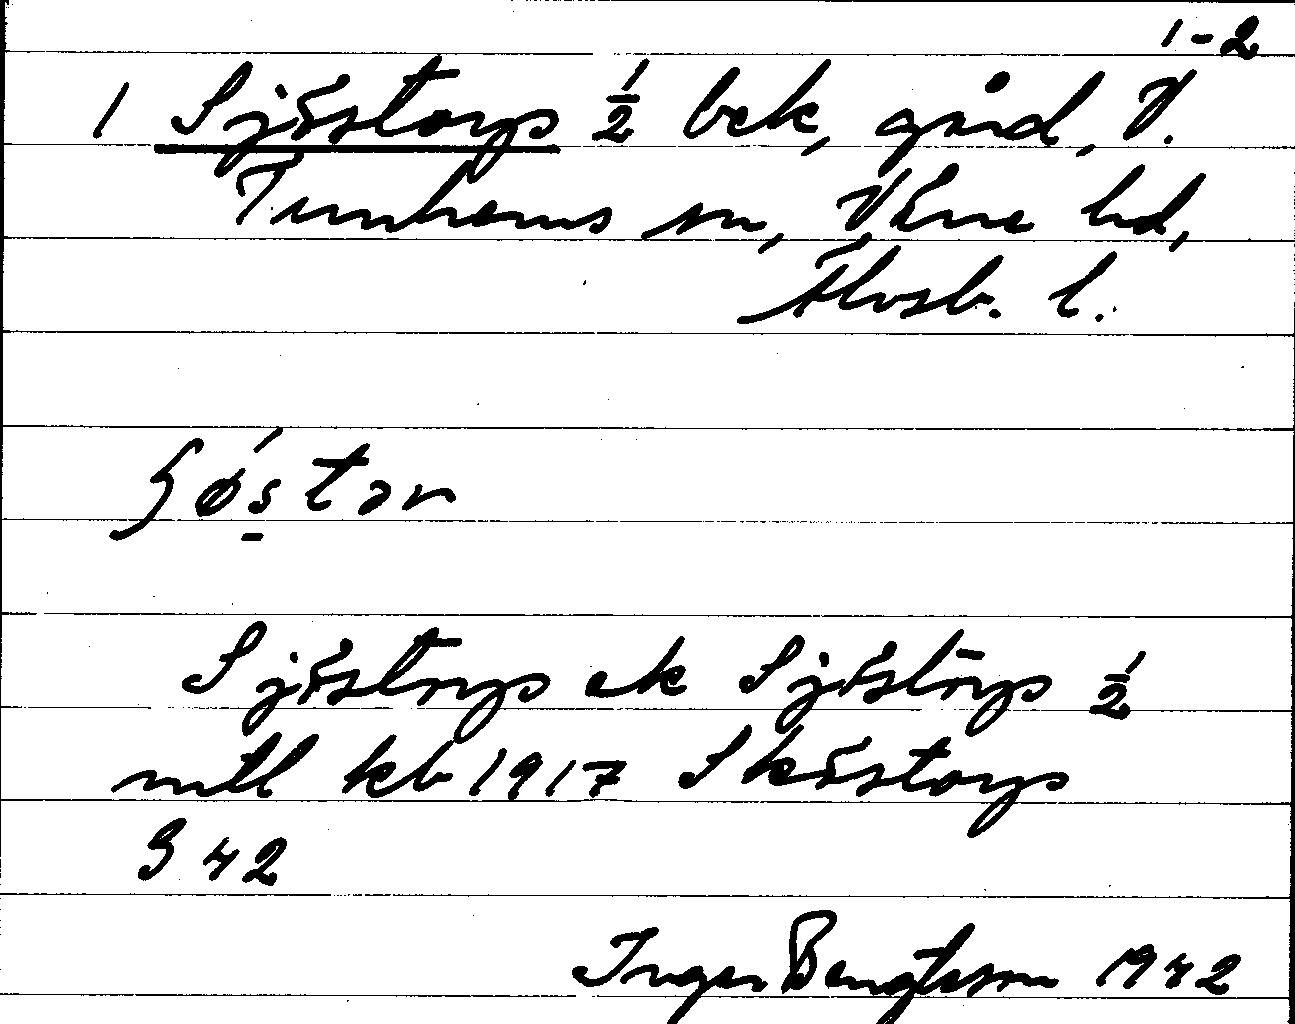 1-2
1 Sjöstorp ½ bek, gård, V.
Tunhems sn, Väne hd,
Älvsb. l.
ʃǿstar
Sjöstorp ek Sjöstörp ½
mtl kb 1917 Sköstorp
G 42
Inger Bengtsson 1942